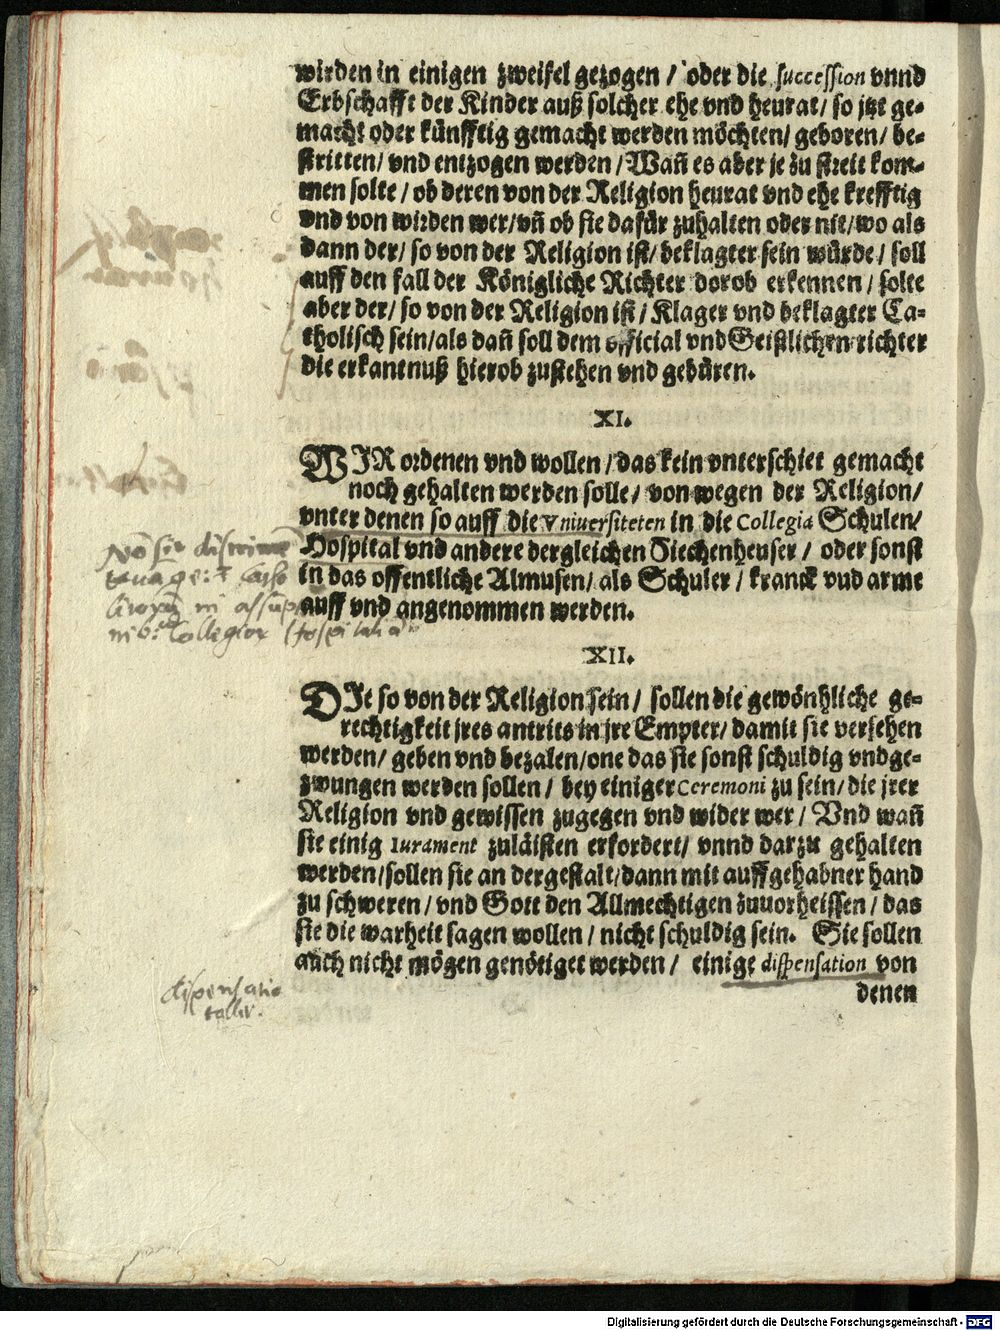 wirden in einigen zweifel gezogen / oder die succession vnnd
Erbschafft der Kinder auß solcher ehe vnd heurat / so jtzt ge-
macht oder künfftig gemacht werden möchten / geboren / be-
stritten / vnd entzogen werden / Wañ es aber je zu streit kom-
men solte / ob deren von der Religion heurat vnd ehe krefftig
vnd von wirden wer / vñ ob sie dafür zuhalten oder nit / wo als
dann der / so von der Religion ist / beklagter sein würde / soll
auff den fall der Königliche Richter dorob erkennen / solte
aber der / so von der Religion ist / Klager vnd beklagter Ca-
tholisch sein / als dañ soll dem official vnd Geistlichen richter
die erkantnuß hierob zustehen vnd gebüren.
XI.
WIR ordenen vnd wollen / das kein vnterschiet gemacht
noch gehalten werden solle / von wegen der Religion /
vnter denen so auff die Vniuersiteten in die Collegia Schulen /
Hospital vnd andere dergleichen Siechenheuser / oder sonst
in das offentliche Almusen / als Schuler / kranck vnd arme
auff vnd angenommen werden.
in assup
Collegior hospitalia
XII.
DIe so von der Religion sein / sollen die gewönhliche ge-
rechtigkeit jres antrits in jre Empter / damit sie versehen
werden / geben vnd bezalen / one das sie sonst schuldig vnd ge-
zwungen werden sollen / bey einiger Ceremoni zu sein / die jrer
Religion vnd gewissen zugegen vnd wider wer / Vnd wañ
sie einig Iurament zuläisten erfordert / vnnd darzu gehalten
werden / sollen sie an dergestalt / dann mit auffgehabner hand
zu schweren / vnd Gott den Allmechtigen zuuorheissen / das
sie die warheit sagen wollen / nicht schuldig sein. Sie sollen
auch nicht mögen genötiget werden / einige dispensation von
denen
dispensatio
Digitalisierung gefördert durch die Deutsche Forschungsgemeinschaft - DFG